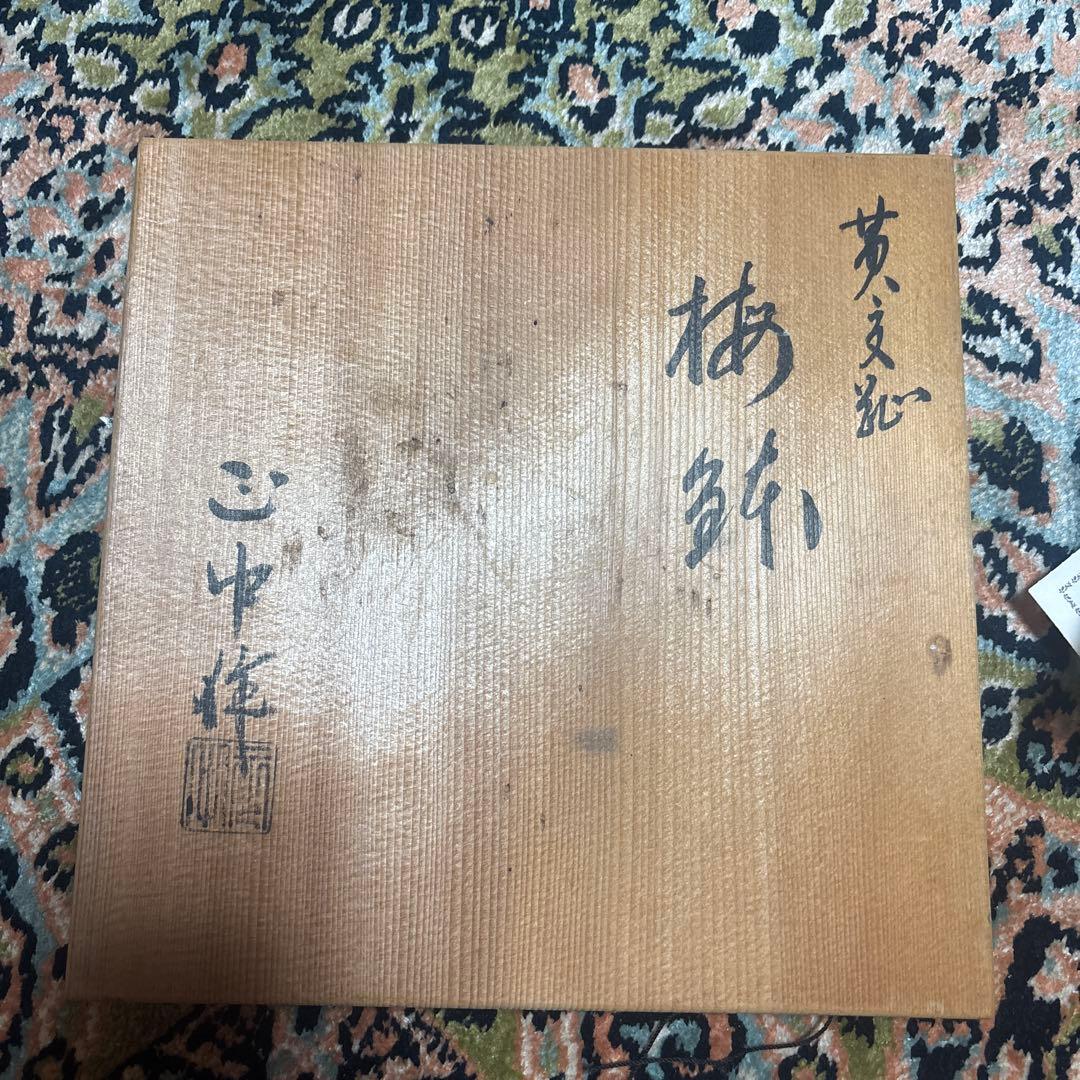 黄交趾
梅鉢
正中作